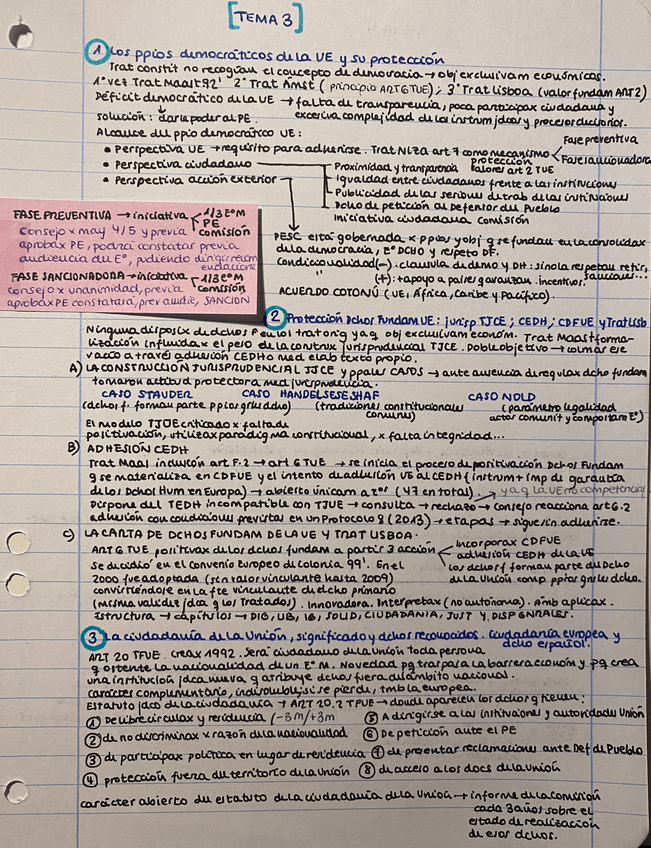 [TEMA 3]
1 Los ppios democráticos de la UE y su protección
Trat constit no recogían el concepto de democracia → obj exclusivam económicos.
1ª vez Trat Maast 92' 2º Trat Amst (principio ART 6 TUE); 3º Trat Lisboa (valor fundam ART 2)
Déficit democrático de la UE → falta de transparencia, poca participax ciudadana y
solución: darle poder al PE. excesiva complejidad de los instrum jdcos y procesos decisorios.
Alcance del ppio democrático UE:
• Perspectiva UE → requisito para adherirse. Trat Niza art 7 como mecanismo protección valores art 2 TUE
Fase preventiva
Fase sancionadora
• Perspectiva ciudadano
Proximidad y transparencia
Igualdad entre ciudadanos frente a las instituciones
Publicidad de las sesiones de trab de las instituciones
Dcho de petición al Defensor del Pueblo
Iniciativa ciudadana Comisión
• Perspectiva acción exterior
PESC está gobernada x ppios y obj q se fundan en la consolidax
de la democracia, Eº DCHO y respeto DF.
Condicionalidad (-): clausula de demo y DH: si no la respetan retir, sanciones...
" (+): + apoyo a países garanzan. incentivos.
ACUERDO COTONÚ (UE, África, Caribe y Pacífico).
FASE PREVENTIVA → iniciativa 1/3 EºM
PE
comisión
Consejo x may 4/5 y previa
aprobax PE, podrá constatar previa
audiencia du Eº, pudiendo dirigir recom
endaciones
FASE SANCIONADORA → iniciativa 1/3 EºM
comisión
consejo x unanimidad, previa
aprobax PE constatará, prev audie, SANCION
2 Protección dchos fundam UE: jurisp TJCE; CEDH; CDFUE y Trat Lisb
Ninguna disposix de dchos F en los trat orig ya q obj exclusivam económ. Trat Maast forma-
lización influida x el peso de la construx jurisprudencial TJCE. Doble objetivo → colmar ese
vacío a través adhesión CEDH o med elab texto propio.
A) LA CONSTRUCCIÓN JURISPRUDENCIAL TJCE y ppales CASOS → ante ausencia de regulax dcho fundam
tomaron actitud protectora med jurisprudencia.
CASO STAUDER CASO HANDELSESESHAF CASO NOLD
(dchos f. forman parte ppios grles dcho) (tradiciones constitucionales comunes) (parámetro legalidad
actos comunit y comportam Eº)
El modulo TJCE criticado x falta de
positivación, utilizax paradigma constitucional, x falta integridad...
B) ADHESIÓN CEDH
Trat Maas inclusión art F.2 → art 6 TUE → se inicia el proceso de positivación Dchos Fundam
q se materializa en CDFUE y el intento de adhesión UE al CEDH (instrum + imp de garantía
de los Dchos Hum en Europa) → abierto únicam a Eºs (47 en total). → ya q la UE no competencias
Dispone del TEDH incompatible con TJUE → consulta → rechazo → Consejo reacciona art 6.2
adhesión con condiciones previstas en un Protocolo 8 (2013) → etapas → sigue sin adherirse.
C) LA CARTA DE DCHOS FUNDAM DE LA UE Y TRAT LISBOA.
ART 6 TUE positivax de los dchos fundam a partir 3 acción
incorporax CDFUE
adhesión CEDH de la UE
los dchos f forman parte du Dcho
de la Unión comp ppios grles dcho.
Se decidió en el Convenio Europeo de Colonia 99'. En el
2000 fue adoptada (sin valor vinculante hasta 2009)
convirtiéndose en la fte vinculante du dcho primario
(misma validez jdca q los Tratados). Innovadora. Interpretax (no autónoma). Amb aplicax.
Estructura → capítulos → DIG, LIB, IG, SOLID, CIUDADANIA, JUST Y DISP GNRALES.
3 La ciudadanía de la Unión, significado y dchos reconocidos. Ciudadanía europea y
dcho español.
ART 20 TFUE. Creax 1992. Será ciudadano de la Unión toda persona
q ostente la nacionalidad de un EºM. Novedad pq traspasa la barrera económ y pq crea
una institución jdca nueva q atribuye dchos fuera du ámbito nacional.
Carácter complementario, indisoluble, si se pierde, tmb la europea.
Estatuto jdco de la ciudadanía → ART 20.2 TFUE → donde aparecen los dchos q tienen:
1 De libre circulax y residencia (-3m/+3m
2 de no discriminax x razón de la nacionalidad
3 de participax política en lugar de residencia
4 protección fuera del territorio de la Unión
5 A dirigirse a las instituciones y autoridades Unión
6 De petición ante el PE
7 de presentar reclamaciones ante Def du Pueblo
8 de acceso a los docs de la Unión
carácter abierto du estatuto de la ciudadanía de la Unión → informe de la comisión
cada 3 años sobre el
estado de realización
de esos dchos.